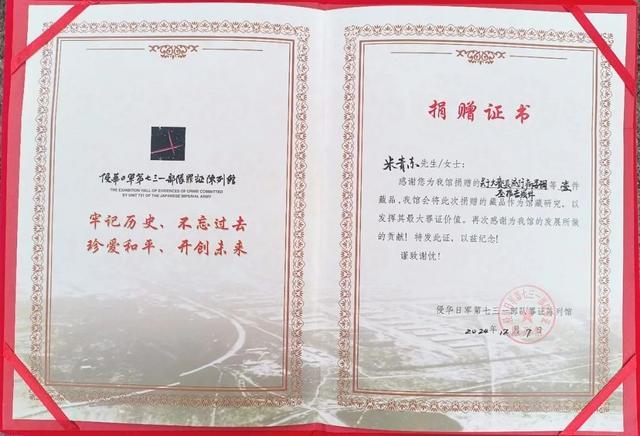 侵华日军第七三一部队罪证陈列馆
THE EXHIBITION HALL OF EVIDENCES OF CRIME COMMITTED
BY UNIT 731 OF THE JAPANESE IMPERIAL ARMY
牢记历史、不忘过去
珍爱和平、开创未来
捐赠证书
米青东先生/女士:
感谢您为我馆捐赠的 等壹件
藏品,我馆会将此次捐赠的藏品作为馆藏研究,以
发挥其最大罪证价值。再次感谢为我馆的发展所做
的贡献!特发此证,以兹纪念!
谨致谢忱!
侵华日军第七三一部队罪证陈列馆
2024年12月9日